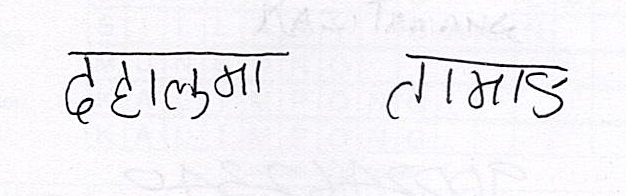 दहालुमा तामाङ